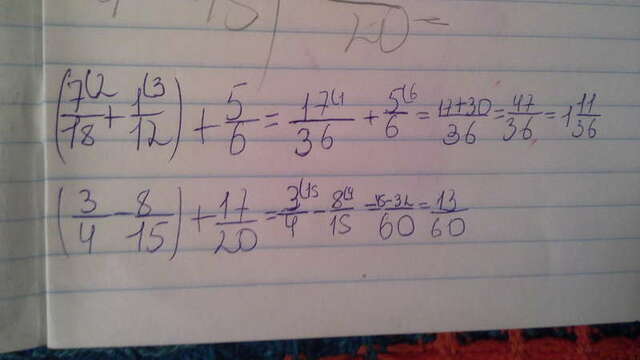 20 =
(7(2/18 + 1(3/12) + 5/6 = 17(1/36 + 5(6/6 = 17+30/36 = 47/36 = 1 11/36
(3/4 - 8/15) + 17/20 = 3(15/4 - 8(4/15 = 45-32/60 = 13/60